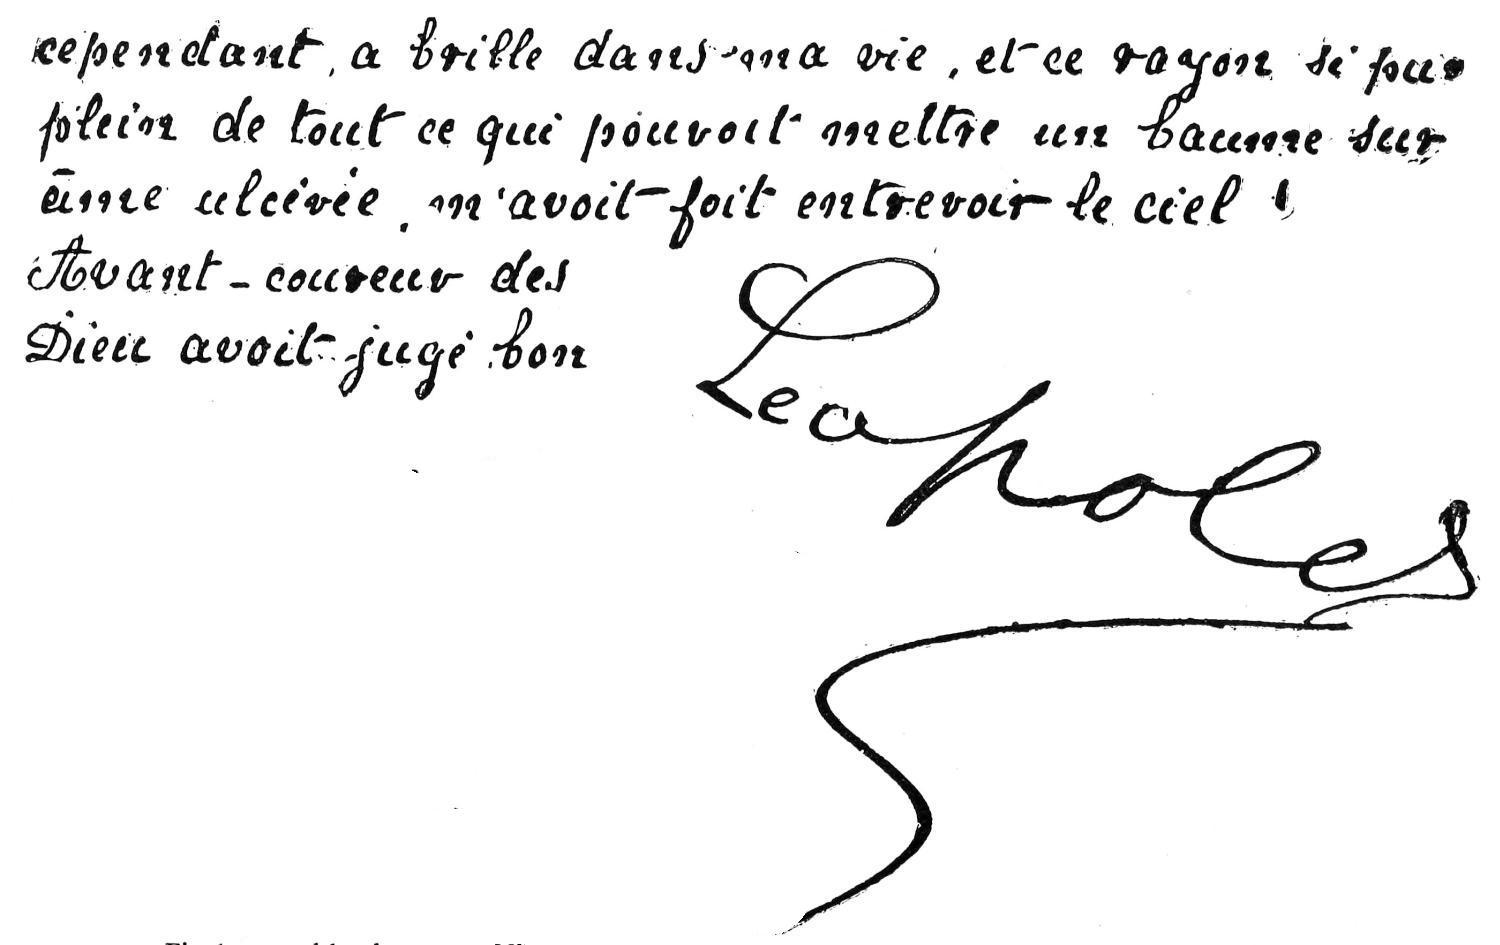 cependant, a brille dans ma vie, et ce rayon si pur
plein de tout ce qui pouvoit mettre un baume sur
âme ulcérée, m'avoit foit entrevoir le ciel !
Avant-coureur des
Dieu avoit jugé bon
Leapoles